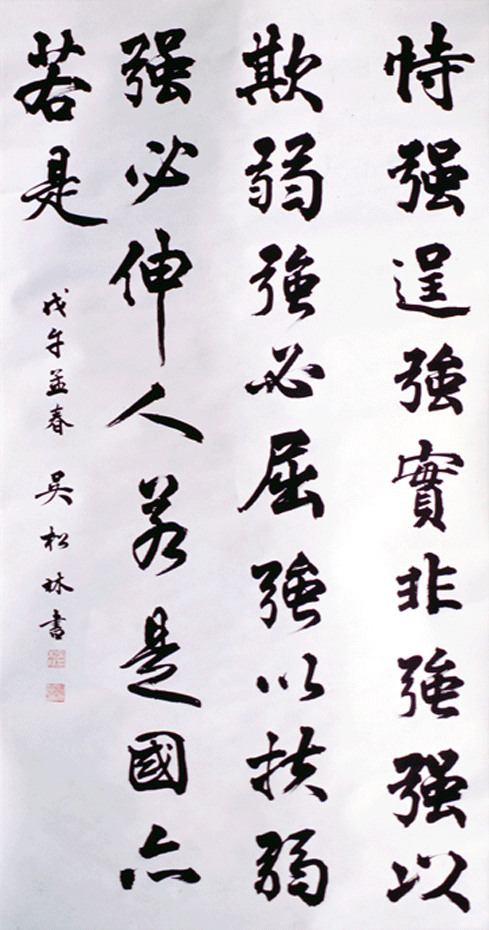 恃強逞強實非強強以
欺弱強必屈強以扶弱
強必伸人若是國亦
若是
戊午孟春 吳松林書